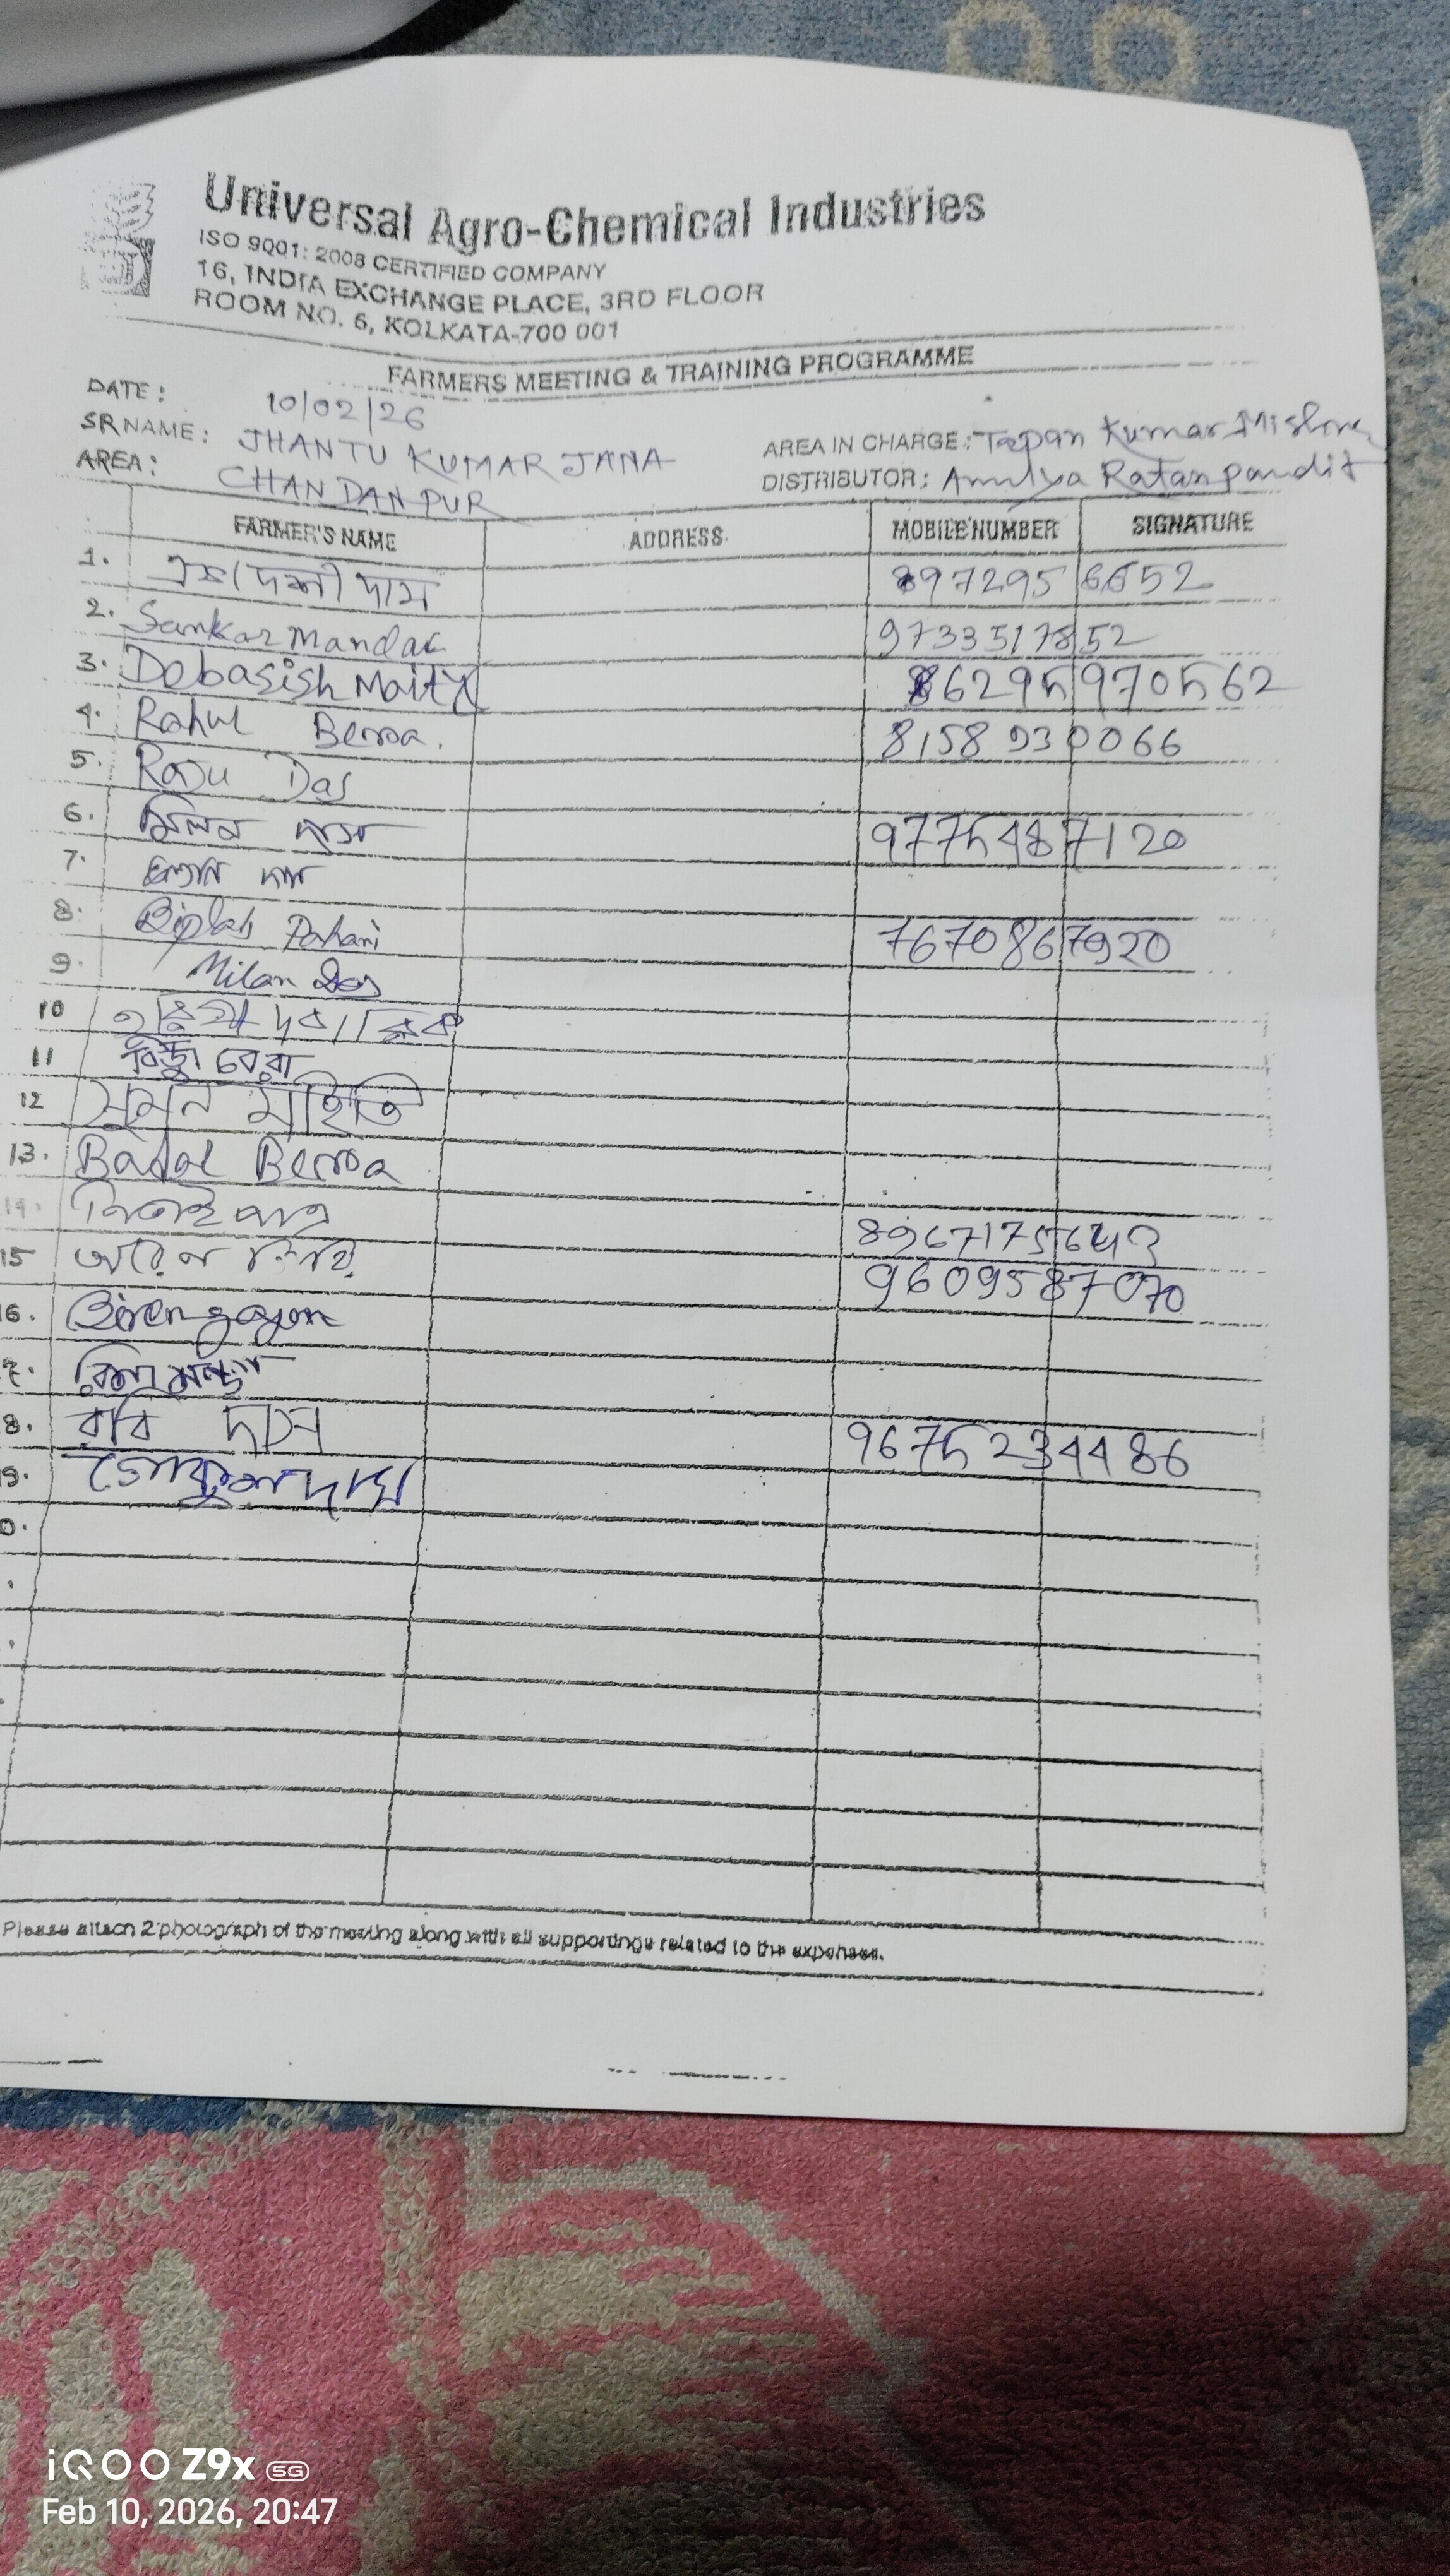 Universal Agro-Chemical Industries
ISO 9001: 2008 CERTIFIED COMPANY
16, INDIA EXCHANGE PLACE, 3RD FLOOR
ROOM NO. 6, KOLKATA-700 001
FARMERS MEETING & TRAINING PROGRAMME
DATE: 10/02/26
SR NAME: JHANTU KUMAR JANA AREA IN CHARGE: Tapan Kumar Mishra
AREA: CHANDANPUR DISTRIBUTOR: Amulya Ratan pandit
FARMER'S NAME ADDRESS. MOBILE NUMBER SIGNATURE
1. দাস 8972956652
2. Sankar Mandal 9733517852
3. Debasish Maity 86295970562
4. Rahul Bera. 8158930066
5. Raju Das
6. মিলন দাস 9775487120
7. দাস
8. Biplab Pahari 7670867920
9. Milan Das
10
11 বিষ্ণু বেরা
12 সুমন মাইতি
13. Badal Bera
14. নিতাই পাত্র 8967175643
15 9609587070
16. Biren gayen
7.
8. রবি দাস 9675234486
9. গোকুল দাস
0.
Please attach 2 photograph of the meeting along with all supportings related to the expenses.
iQOO Z9x 5G
Feb 10, 2026, 20:47